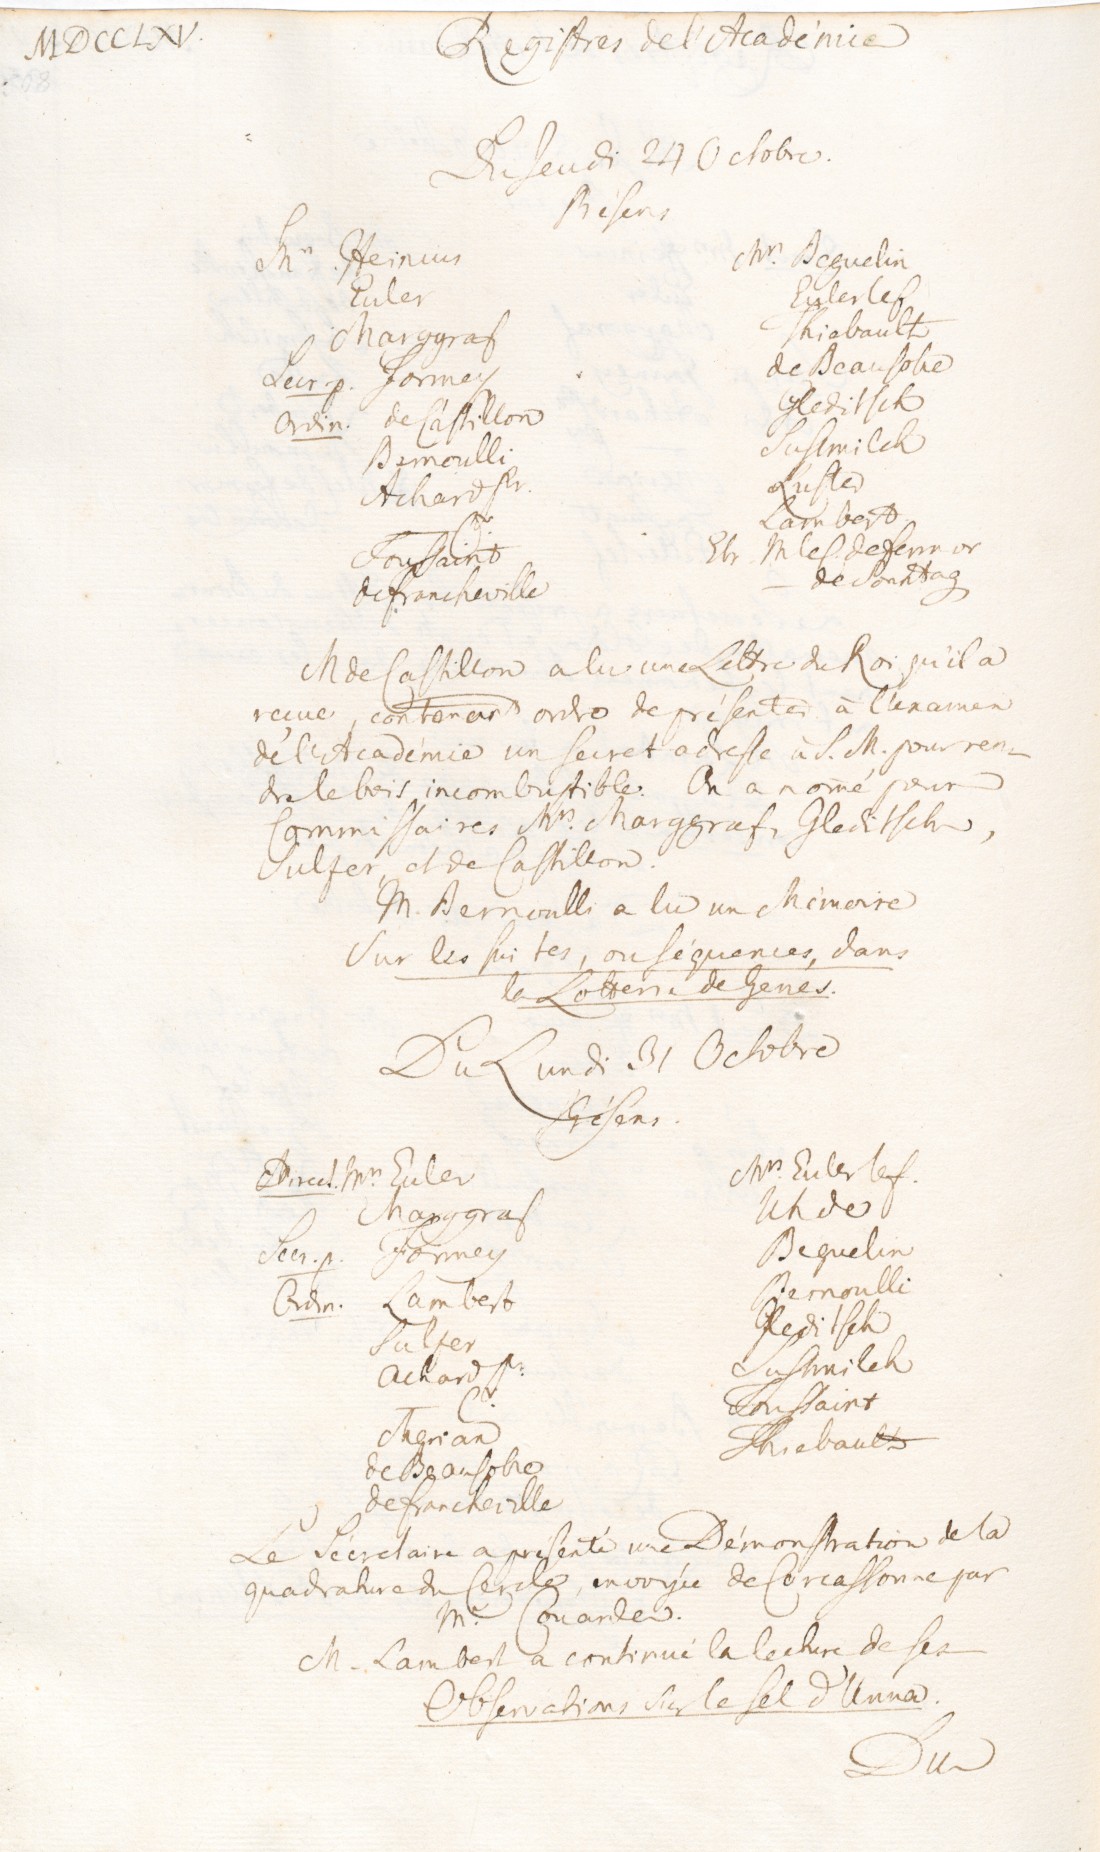 MDCCLXV.
Registres de l'Académie
Du Jeudi 24 Octobre.
Présens
Mrs. Heinius
Euler
Marggraf
Secr. p. Formey
Ordin. de Castillon
Bernoulli
Achard Pr.
C.
Toussaint
de Francheville
Mrs. Beguelin
Euler le f.
Thiebault
de Beausobre
Gleditsch
Susmilch
Lambert
Etr. M. le C. de Fermor
— de Sonntag
M de Castillon a lu une Lettre du Roi qu'il a
recue, contenant ordre de présenter à l'examen
de l'Académie un secret adressé à S. M. pour ren-
dre le bois incombustible. On a nomé pour
Commissaires Mrs. Marggraf, Gleditsch,
Sulzer, et de Castillon.
M. Bernoulli a lu un Mémoire
Sur les suites, ou séquences, dans
la Lotterie de Genes.
Du Lundi 31 Octobre
Présens.
Direct. Mrs Euler
Marggraf
Secr. p. Formey
Ordin. Lambert
Sulzer
Achard Pr.
C.
Merian
de Beausobre
de Francheville
Mrs. Euler le f.
Uhde
Beguelin
Bernoulli
Gleditsch
Susmilch
Toussaint
Thiebault
Le Sécretaire a présenté une Démonstration de la
quadrature du Cercle, envoyée de Carcassonne par
Mr.
M. Lambert a continué la lecture de ses
Observations sur le sel d'Unna.
Du